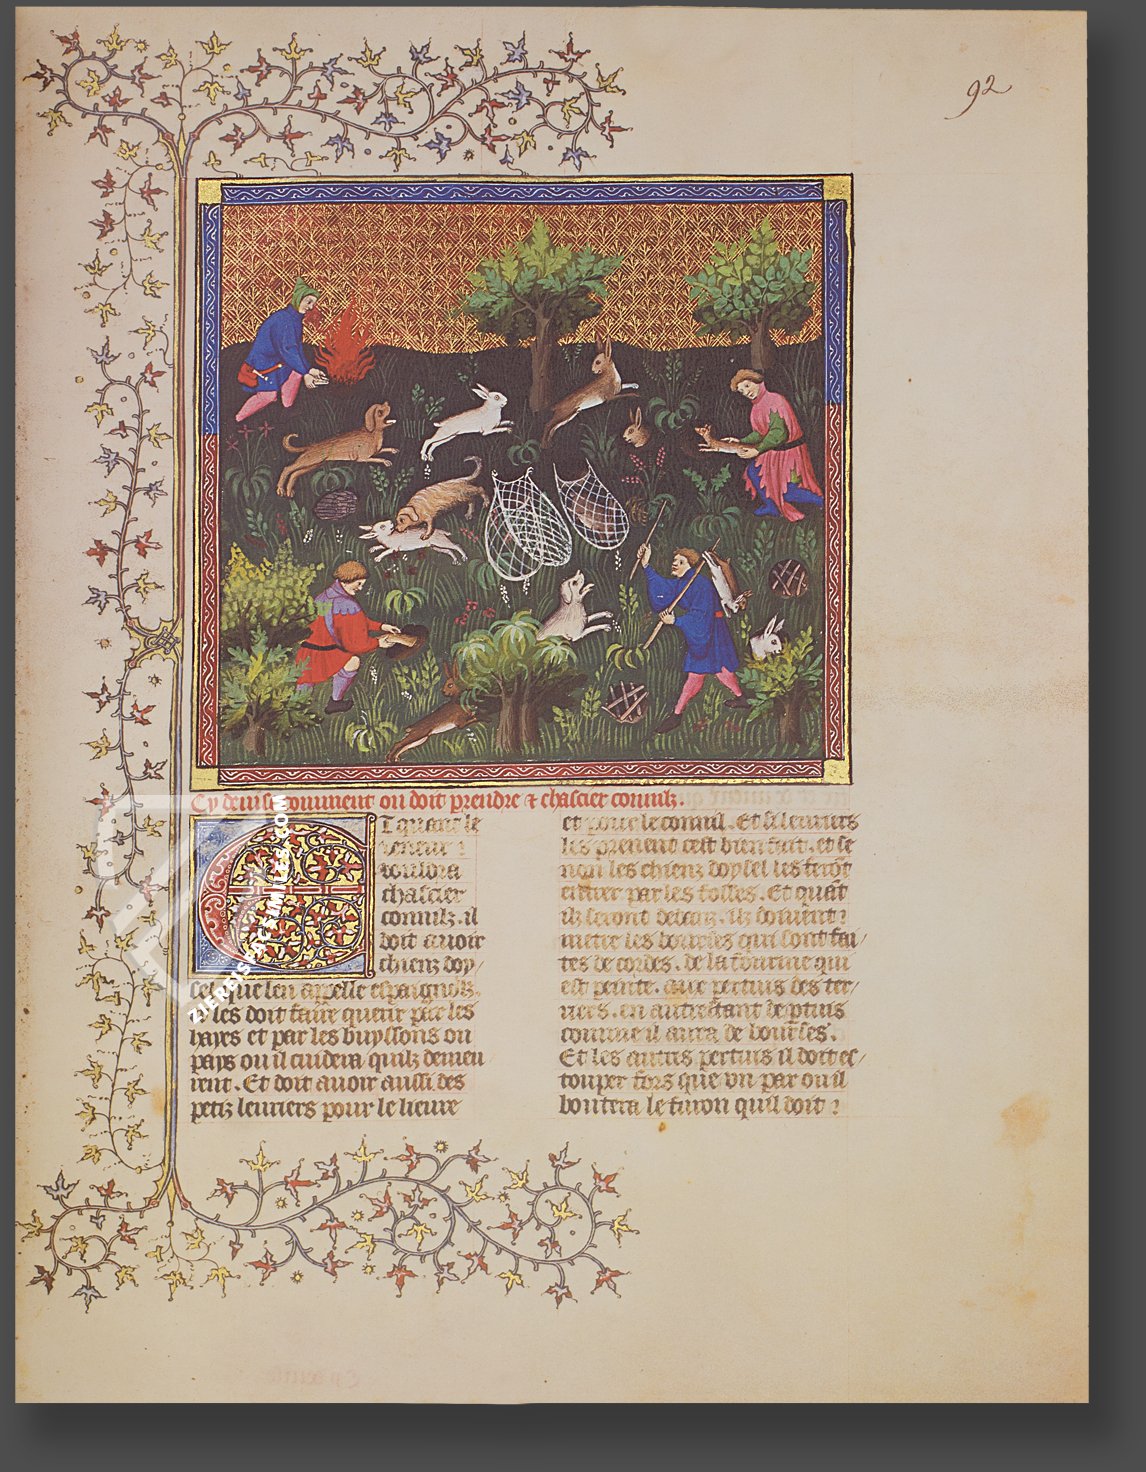 92
Cy devise comment on doit prendre et chascier connilz.
Et quant le
veneur
vouldra
chascier
connilz. il
doit avoir
chienz doy/
sel que len appelle espaignolz.
Il les doit faire querir par les
hayes et par les buyssons ou
pays ou il cuidera quilz demeu
rent. Et doit avoir aussi des
petiz levriers pour le lievre
et pour le connil. Et se levriers
les prenent cest bien fait. et se
non les chienz doysel les feront
entrer par les fosses. Et quant
ilz seront dedenz. ilz doivent
metre les bourses qui sont fai/
tes de cordes. de la fourme qui
est peinte. aux pertuis des ter/
riers. en autretant de ptuis
comme il aura de bourses.
Et les autres pertuis il doit es/
touper fors que un par ou il
boutera le furon quil doit
ZIEREIS FACSIMILES.COM